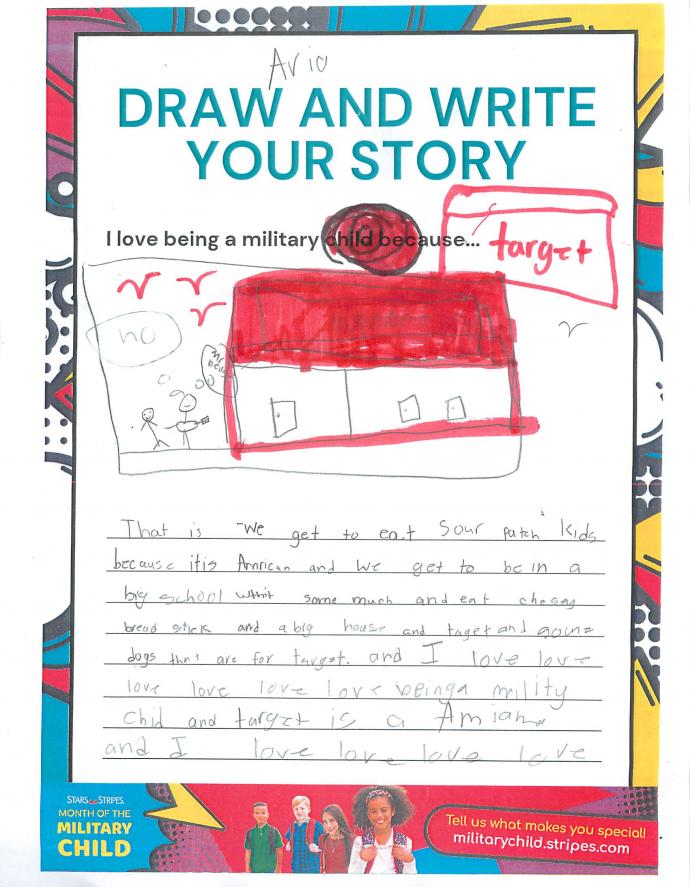 Aria
DRAW AND WRITE
YOUR STORY
I love being a military child because...
target
no
That is "we get to eat Sour patch" kids
because itis Amrican and we get to be in a
big school some much and eat chesey
bread stick and a big house and taget and
dogs that are for target. and I love love
love love love love beinga mility
chid and target is a
and I love love love love
STARS STRIPES.
MONTH OF THE
MILITARY
CHILD
Tell us what makes you special!
militarychild.stripes.com